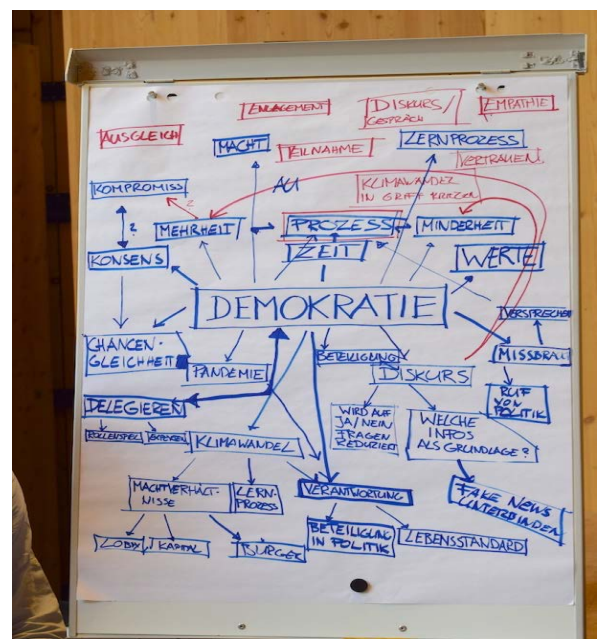 ENGAGEMENT
DISKURS/
GESPRÄCH
EMPATHIE
AUSGLEICH
MACHT
TEILNAHME
LERNPROZESS
VERTRAUEN
KOMPROMISS
?
KLIMAWANDEL
IN GRIFF KRIEGEN
?
MEHRHEIT
PROZESS
MINDERHEIT
KONSENS
ZEIT
WERTE
DEMOKRATIE
VERSPRECHEN
CHANCEN-
GLEICHHEIT
PANDEMIE
BETEILIGUNG
DISKURS
MISSBRAU
RUF
VON
POLITIK
DELEGIEREN
ROLLENSPIEL
EXPERTEN
KLIMAWANDEL
WIRD AUF
JA/NEIN
FRAGEN
REDUZIERT
WELCHE
INFOS
ALS GRUNDLAGE?
MACHTVERHÄLT-
NISSE
LERN-
PROZESS
VERANTWORTUNG
FAKE NEWS
UNTERBINDEN
LOBBY
KAPITAL
BÜRGER
BETEILIGUNG
IN POLITIK
LEBENSSTANDARD